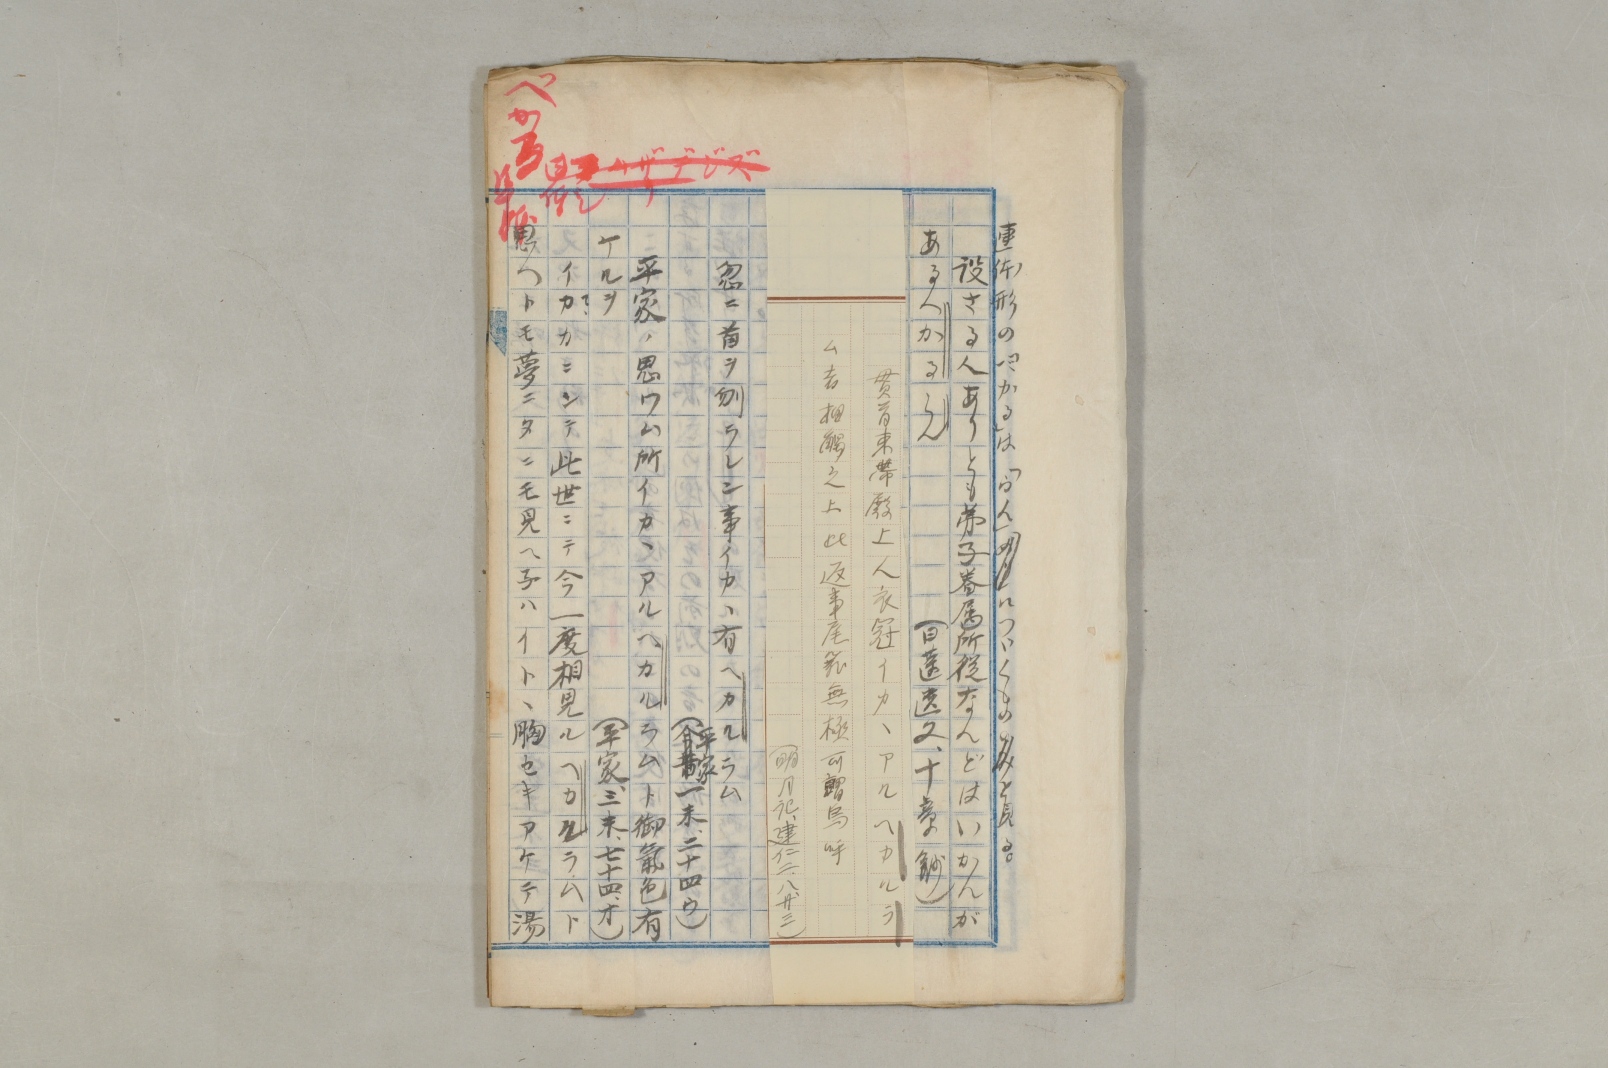 連体形の「べかる」は「らん」につづくもののみと見る。
設さる人ありとも弟子眷属所従なんどはいかんが
あるべかるらん
(日蓮遺文、十章鈔)
貫首束帯殿上人衣冠イカヽアルヘカルラ
ム書相觸之上此返事尾籠無極可謂嗚呼
(明月記、建仁二、八、廿三)
忽ニ首ヲ刎ラレン事イカヽ有ヘカルラム
(平家一末、二十四ウ)
平家ノ思ワム所イカヽアルヘカルラムト御氣色有
ケルヲ
(平家、三末、七十四オ)
イカガニシテ此世ニテ今一度相見ルヘカルラムト
思ヘトモ夢ニタニモ見ヘ子ハイトヽ胸セキアケテ湯
べかる